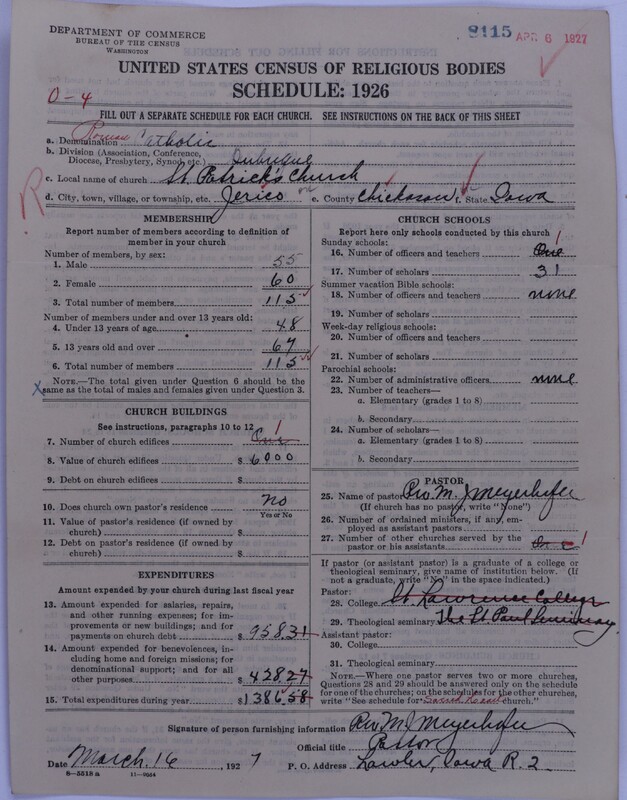 DEPARTMENT OF COMMERCE
BUREAU OF THE CENSUS
WASHINGTON
8115 APR 6 1927
UNITED STATES CENSUS OF RELIGIOUS BODIES
SCHEDULE: 1926
0-4
FILL OUT A SEPARATE SCHEDULE FOR EACH CHURCH. SEE INSTRUCTIONS ON THE BACK OF THIS SHEET
a. Denomination Roman Catholic
b. Division (Association, Conference, Diocese, Presbytery, Synod, etc.) Dubuque
c. Local name of church St. Patrick's Church
d. City, town, village, or township, etc. Jerico e. County Chickasaw f. State Iowa
R
MEMBERSHIP
Report number of members according to definition of member in your church
Number of members, by sex:
1. Male 55
2. Female 60
3. Total number of members 115
Number of members under and over 13 years old:
4. Under 13 years of age 48
5. 13 years old and over 67
6. Total number of members 115
NOTE.—The total given under Question 6 should be the same as the total of males and females given under Question 3.
CHURCH BUILDINGS
See instructions, paragraphs 10 to 12
7. Number of church edifices One 1
8. Value of church edifices $ 6000
9. Debt on church edifices $
10. Does church own pastor's residence no
Yes or No
11. Value of pastor's residence (if owned by church) $
12. Debt on pastor's residence (if owned by church) $
EXPENDITURES
Amount expended by your church during last fiscal year
13. Amount expended for salaries, repairs, and other running expenses; for improvements or new buildings; and for payments on church debt $ 958.31
14. Amount expended for benevolences, including home and foreign missions; for denominational support; and for all other purposes $ 428.27
15. Total expenditures during year $ 1386.58
CHURCH SCHOOLS
Report here only schools conducted by this church
Sunday schools:
16. Number of officers and teachers One 1
17. Number of scholars 31
Summer vacation Bible schools:
18. Number of officers and teachers none
19. Number of scholars
Week-day religious schools:
20. Number of officers and teachers
21. Number of scholars
Parochial schools:
22. Number of administrative officers none
23. Number of teachers—
a. Elementary (grades 1 to 8)
b. Secondary
24. Number of scholars—
a. Elementary (grades 1 to 8)
b. Secondary
PASTOR
25. Name of pastor Rev M. J Meyerhofer
(If church has no pastor, write "None")
26. Number of ordained ministers, if any, employed as assistant pastors
27. Number of other churches served by the pastor or his assistants One 1
If pastor (or assistant pastor) is a graduate of a college or theological seminary, give name of institution below. (If not a graduate, write "No" in the space indicated.)
Pastor:
28. College St. Lawrence College
29. Theological seminary The St Paul Seminary
Assistant pastor:
30. College
31. Theological seminary
NOTE.—Where one pastor serves two or more churches, Questions 28 and 29 should be answered only on the schedule for one of the churches; on the schedules for the other churches, write "See schedule for church."
Signature of person furnishing information Rev M J Meyerhofer
Official title Pastor
Date March 16, 1927 P. O. Address Lawler, Iowa R. 2
8—5518 a 11—9664